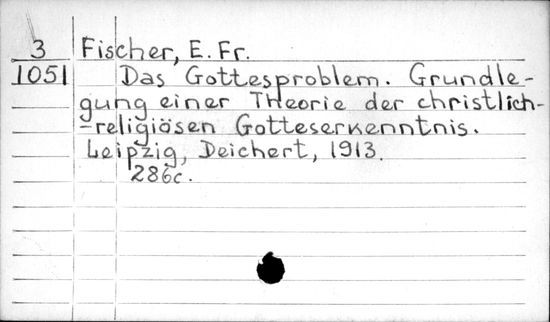 3 Fischer, E. Fr.
1051 Das Gottesproblem. Grundle-
gung einer Theorie der christlich-
-religiösen Gotteserkenntnis.
Leipzig, Deichert, 1913.
286c.